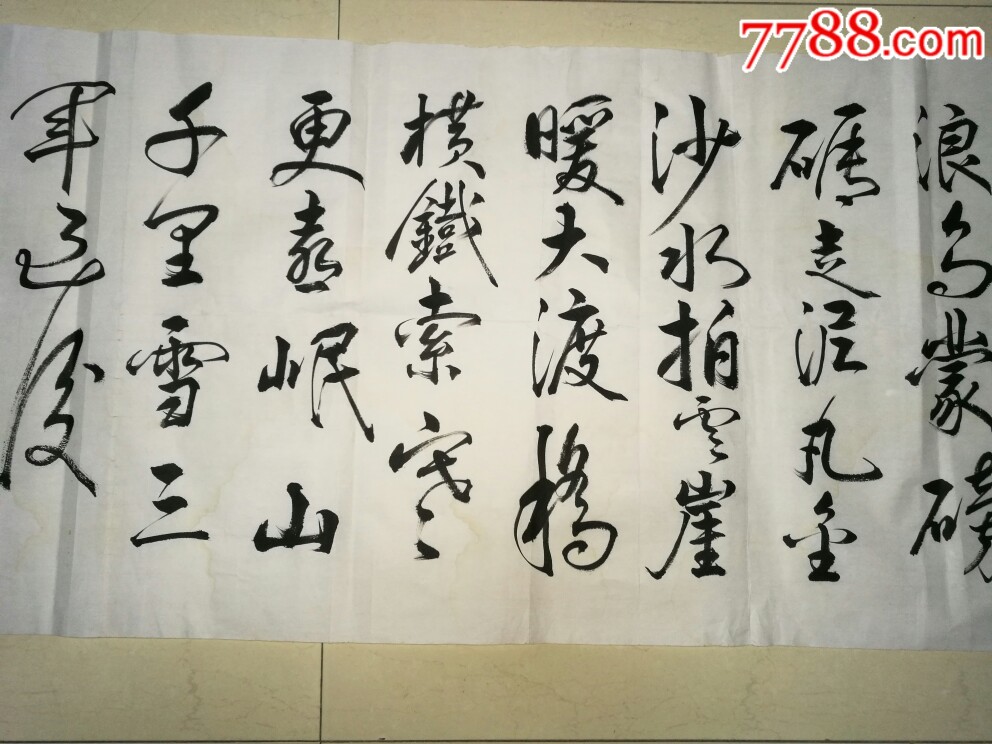 7788.com
浪烏蒙磅
礴走泥丸金
沙水拍雲崖
暖大渡橋
横鐵索寒
更喜岷山
千里雪三
軍過後